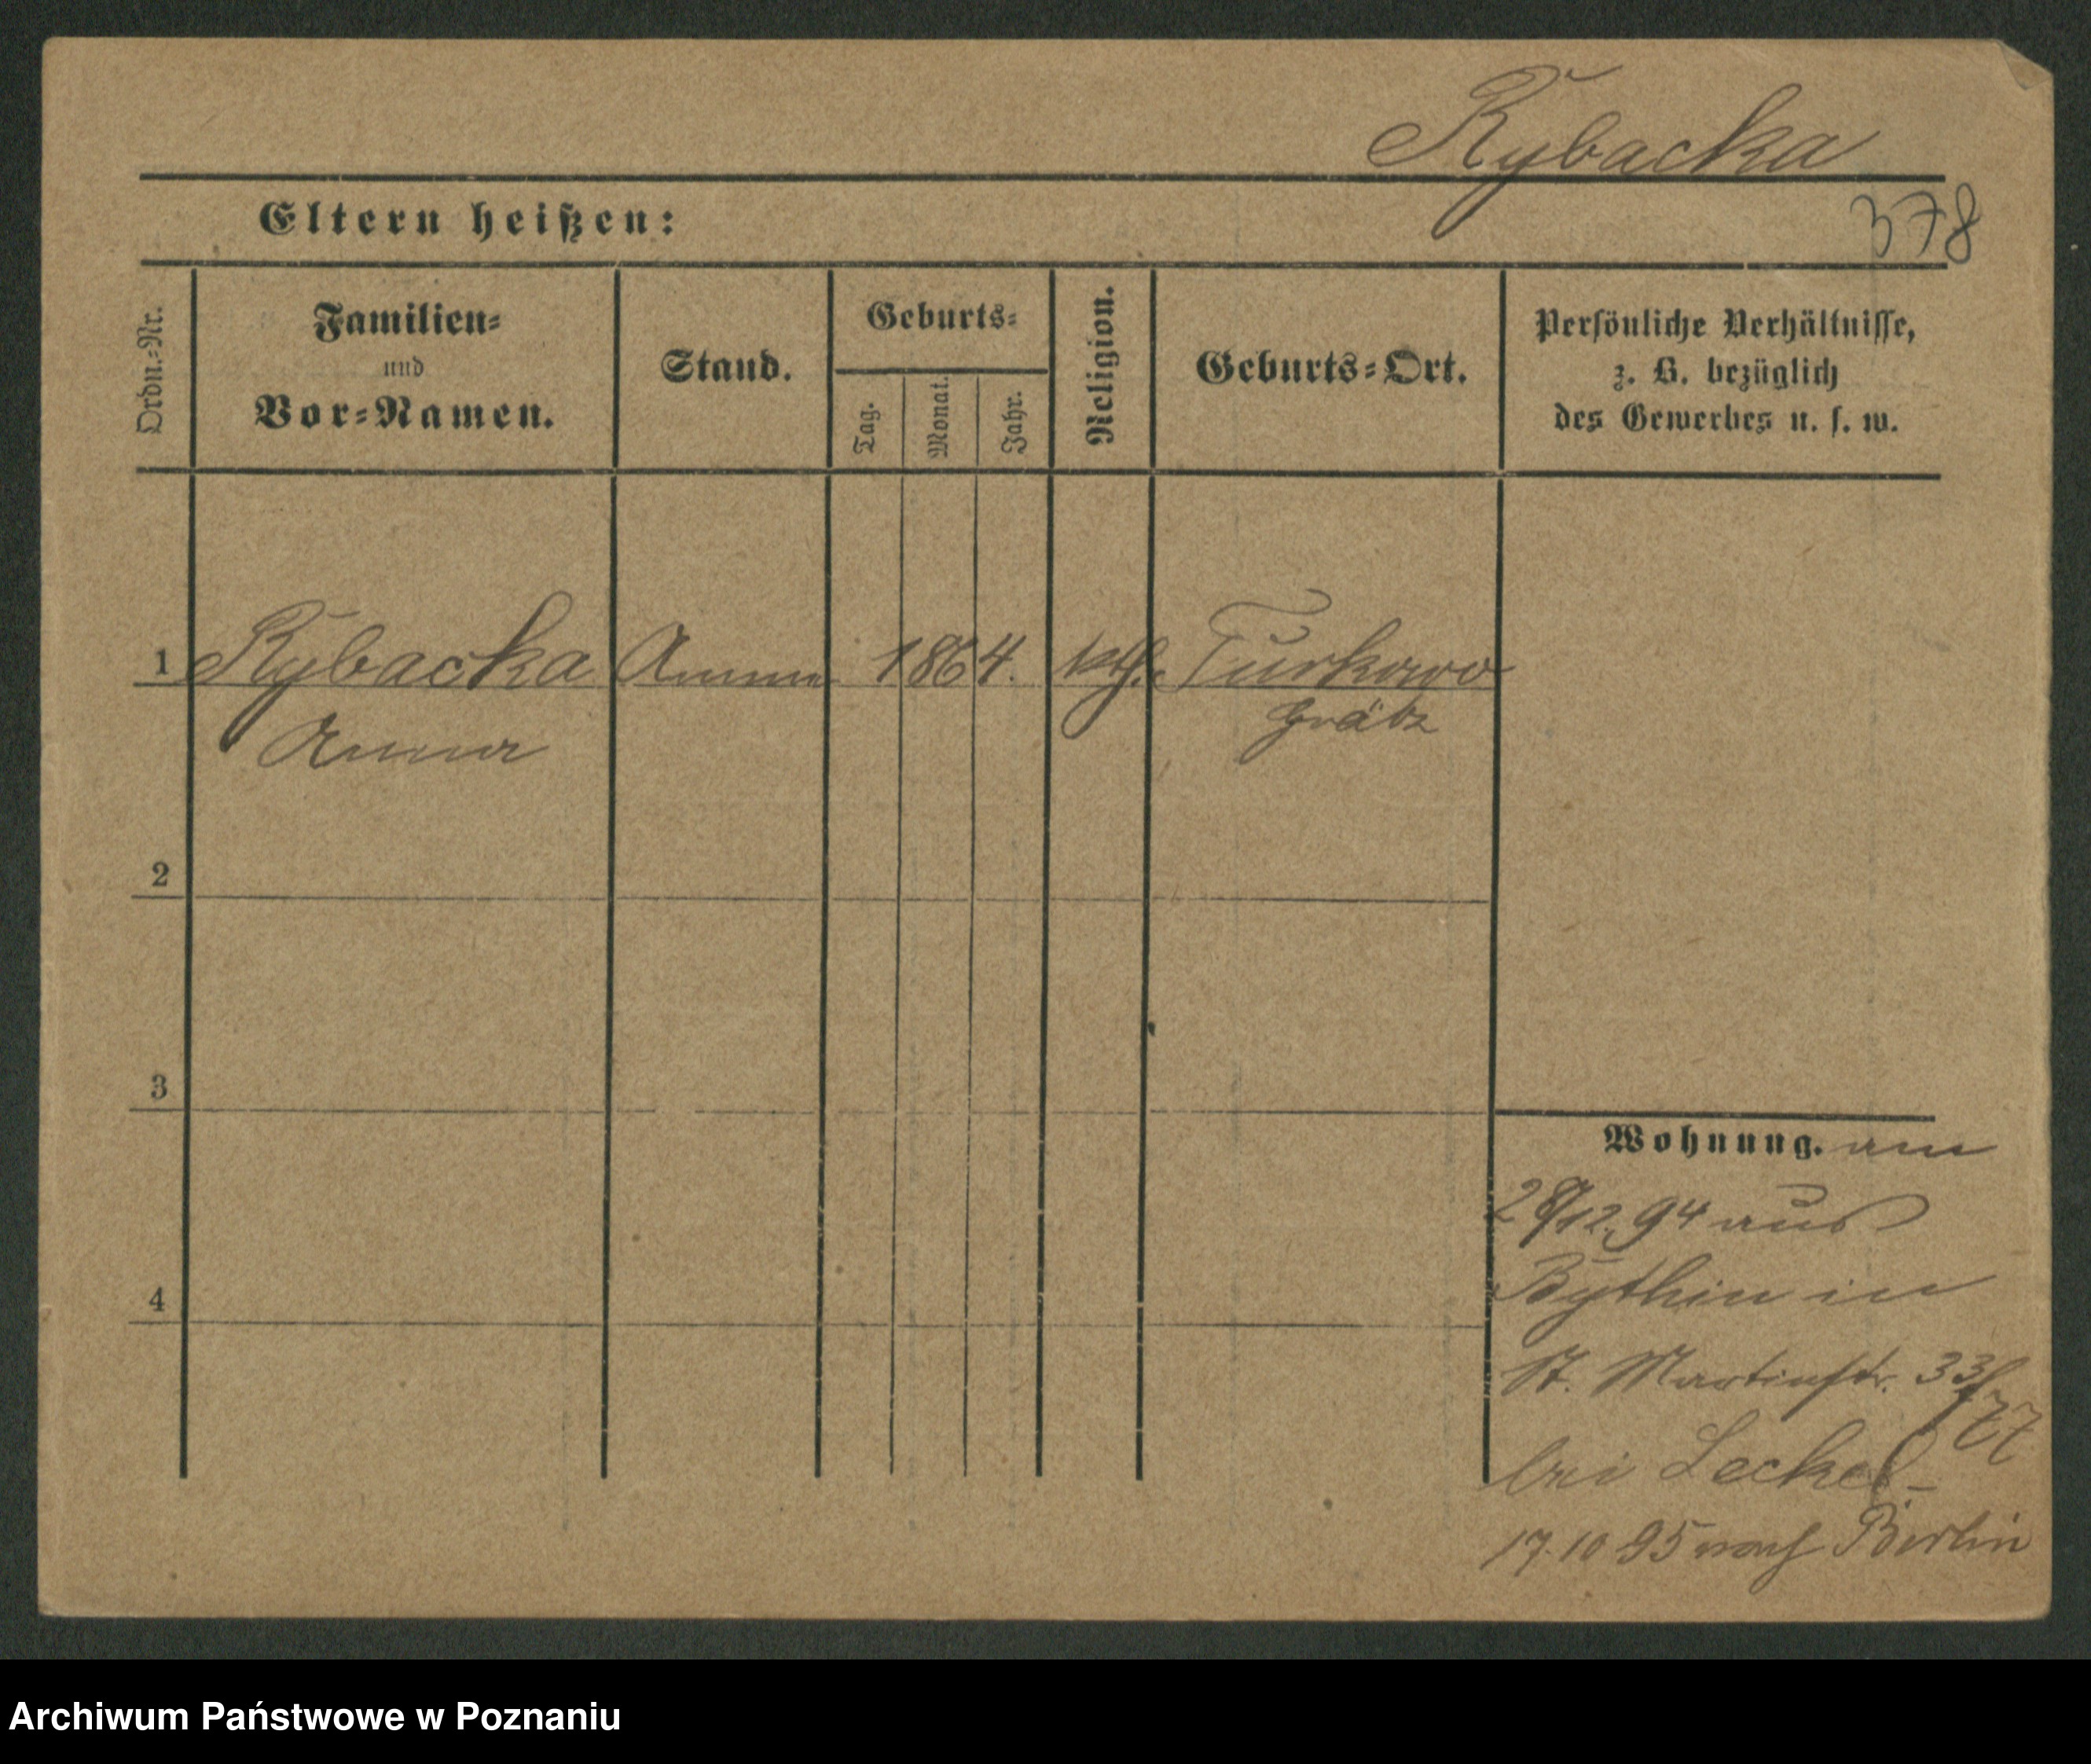 Rybacka
Eltern heißen:
378
Ordn.=Nr.
Familien=
und
Vor=Namen.
Stand.
Geburts=
Tag.
Monat.
Jahr.
Religion.
Geburts=Ort.
Persönliche Verhältnisse,
z. B. bezüglich
des Gewerbes u. s. w.
1 Rybacka Amme 1864. kth. Turkowo
Anna Grätz
2
3
4
Wohnung. am
28/12. 94 aus
Bythin in
St. Martinstr. 33/
77
bei Leckel
17.10 95 nach Berlin
Archiwum Państwowe w Poznaniu